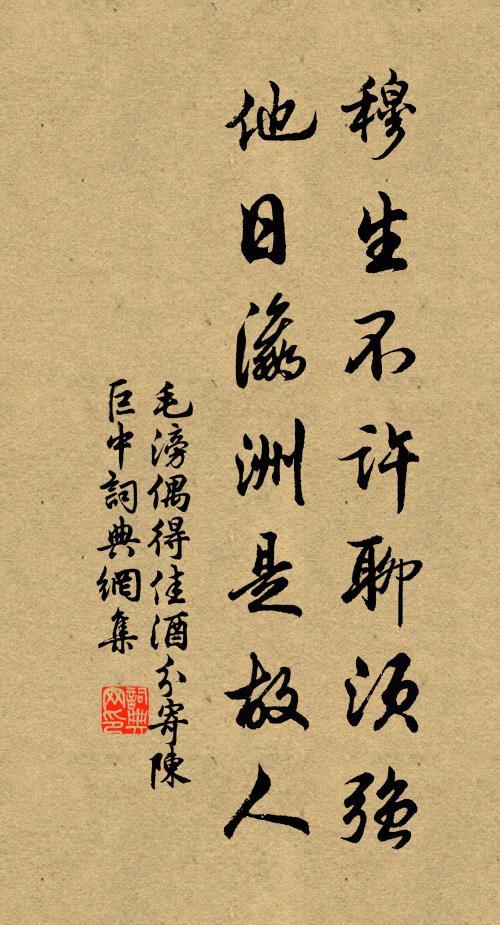 穆生不許聊須強
他日瀛洲是故人
毛滂偶得佳酒分寄陳
巨中詞典網集
詞典网印